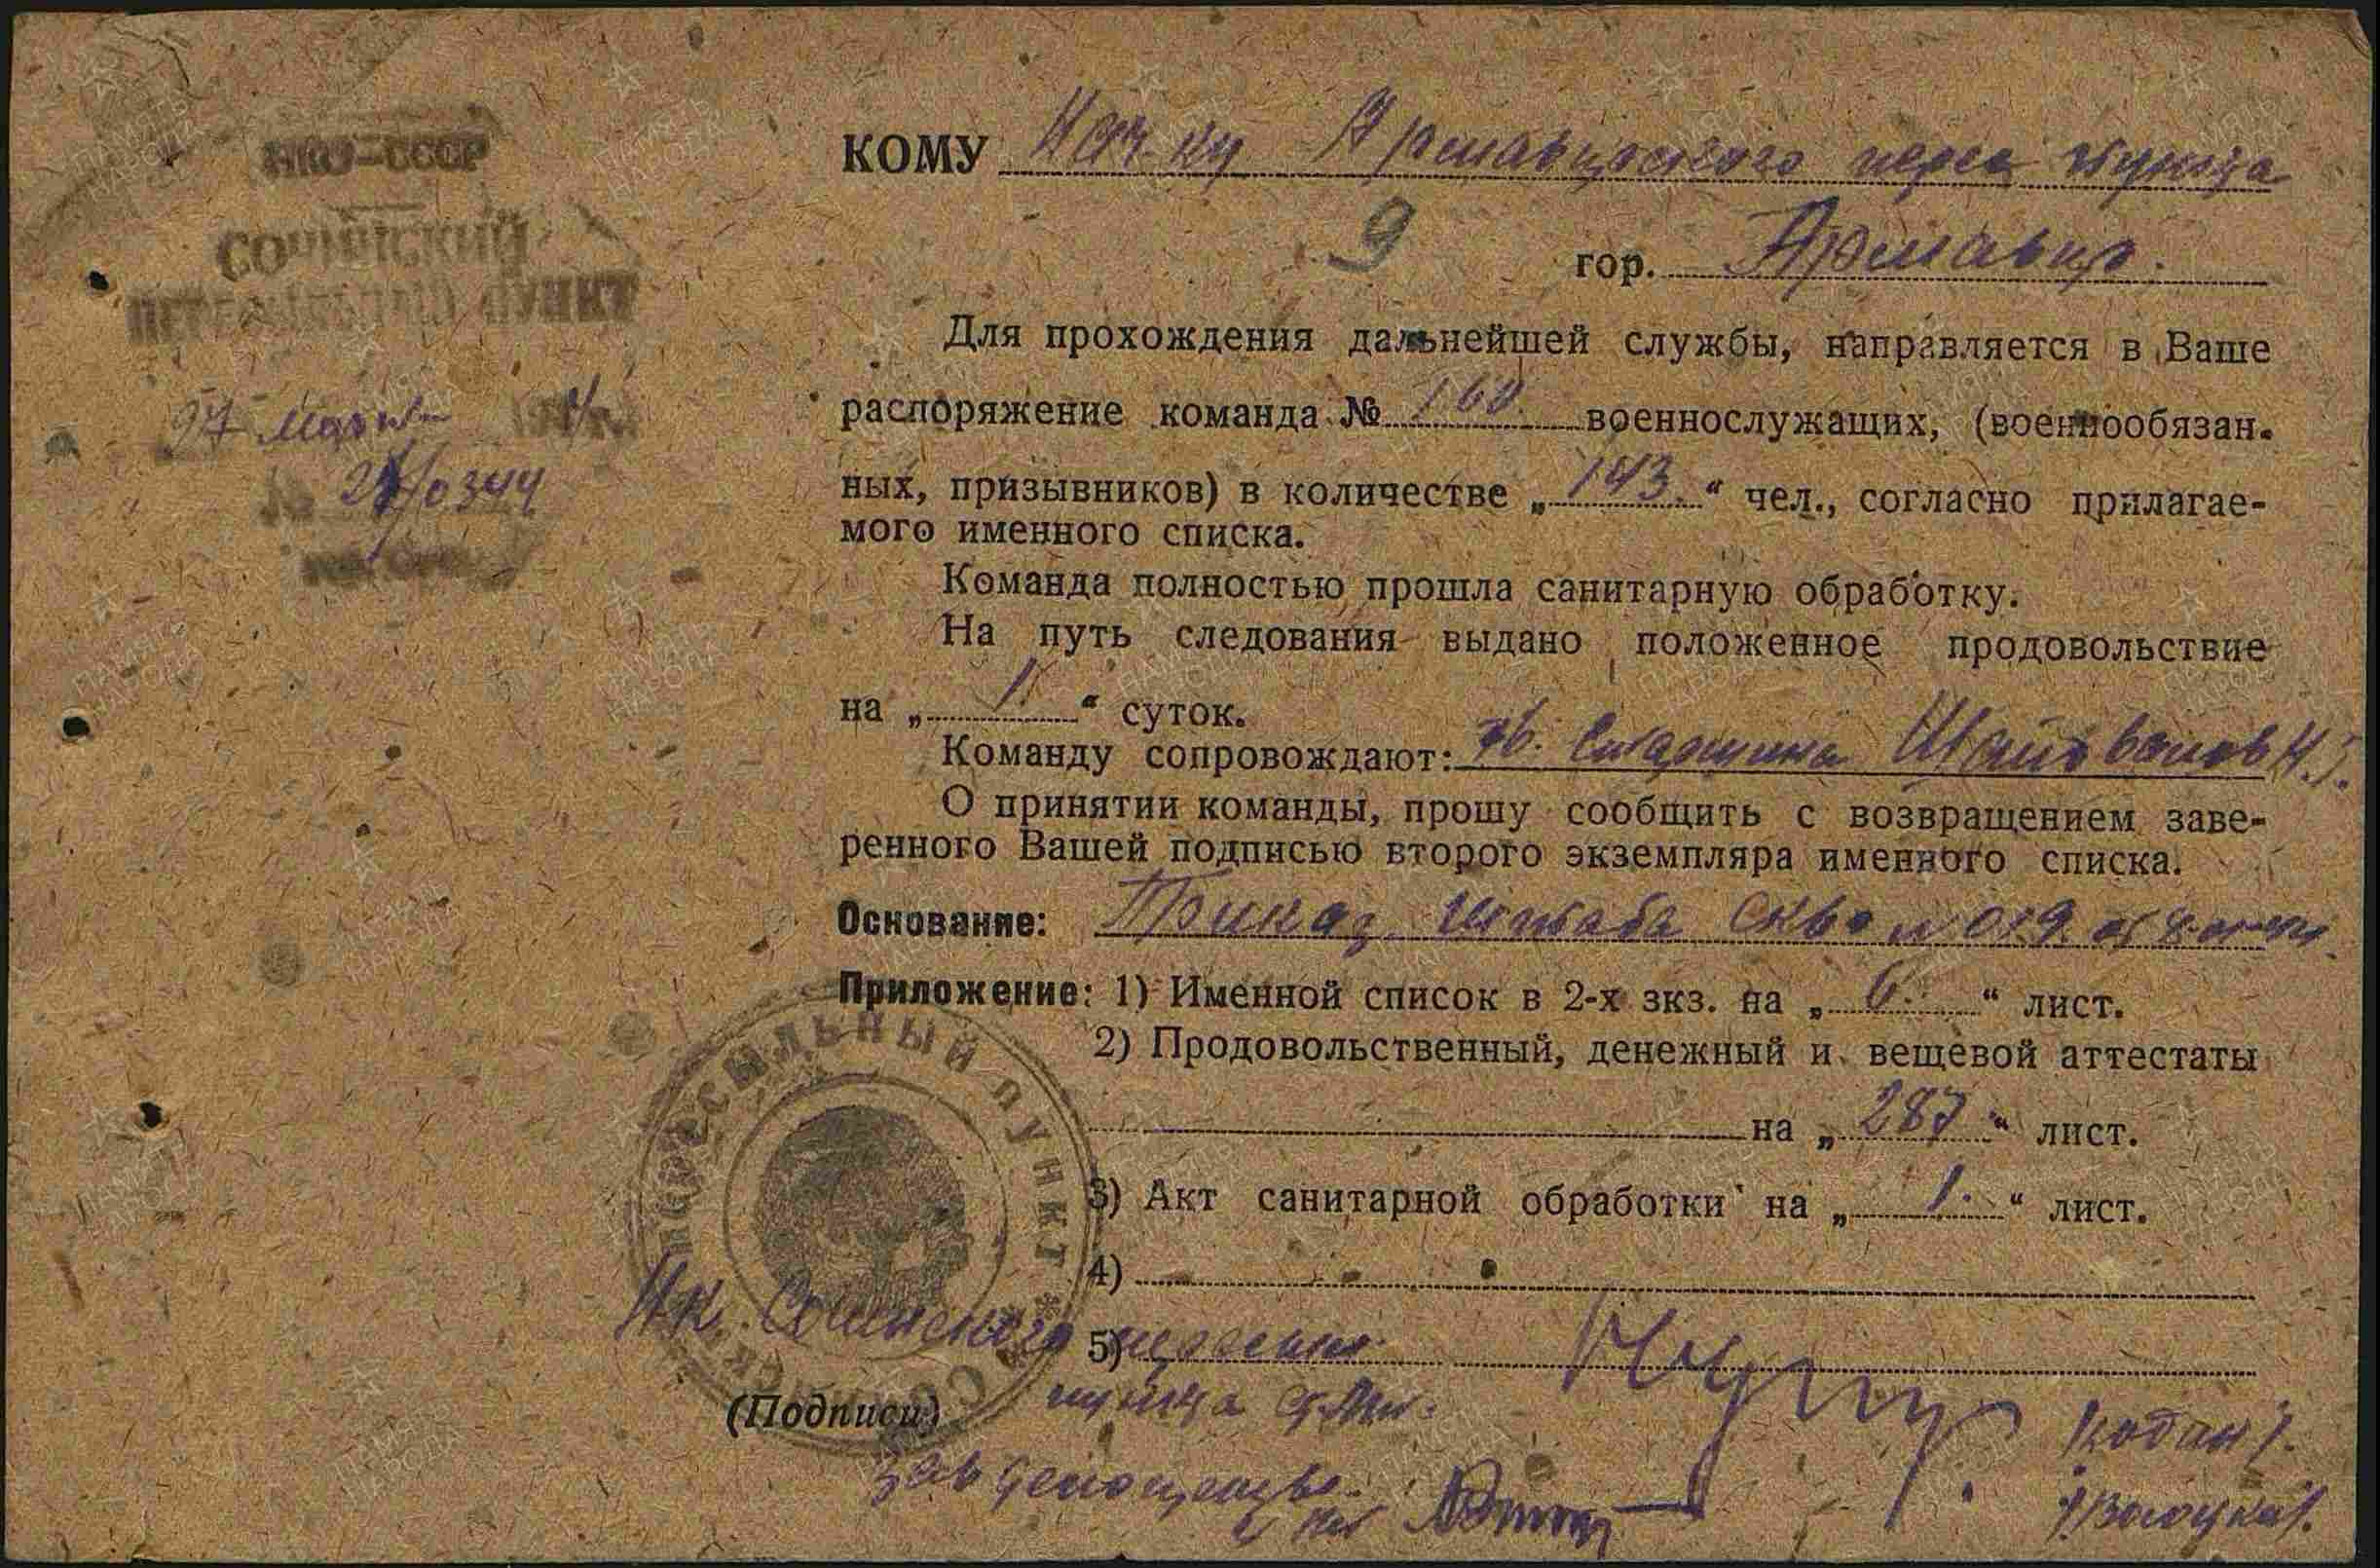 НКО-СССР
СОЧИНСКИЙ
ПЕРЕСЫЛЬНЫЙ ПУНКТ
27 марта 194 г.
№ 0344
КОМУ Нач-ку Армавирского перес пункта
9
гор. Армавир.
Для прохождения дальнейшей службы, направляется в Ваше
распоряжение команда № 160 военнослужащих, (военнообязан-
ных, призывников) в количестве „143.“ чел., согласно прилагае-
мого именного списка.
Команда полностью прошла санитарную обработку.
На путь следования выдано положенное продовольствие
на „1.“ суток.
Команду сопровождают: гв. Старшина
О принятии команды, прошу сообщить с возвращением заве-
ренного Вашей подписью второго экземпляра именного списка.
Основание: Приказ Штаба СКВО № 019 от
Приложение: 1) Именной список в 2-х зкз. на „6.“ лист.
2) Продовольственный, денежный и вещевой аттестаты
на „287.“ лист.
3) Акт санитарной обработки на „1.“ лист.
4)
5)
Сочинского
пункта
(Подписи)
ПЕРЕСЫЛЬНЫЙ ПУНКТ
Зав делопроизв.